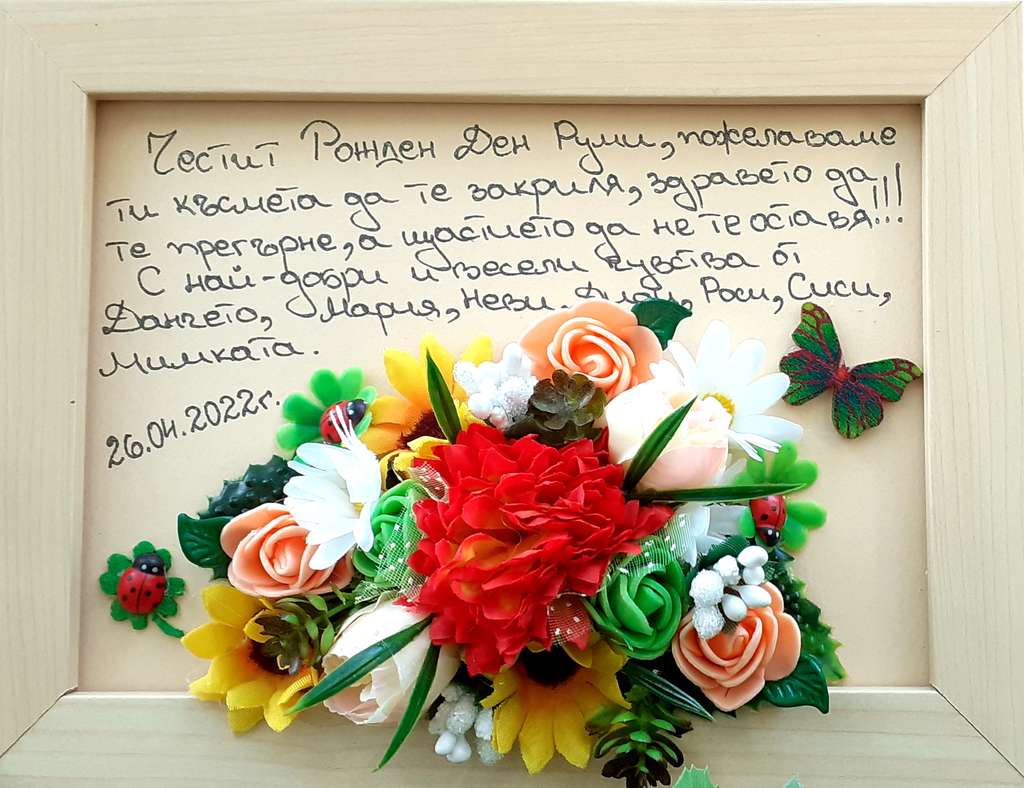 Честит Рожден Ден Руми, пожелаваме
ти късмета да те закриля, здравето да
те прегърне, а щастието да не те оставя!!!
С най-добри и весели чувства от
Дангето, Мария, Неви, Роси, Сиси,
Мимката.
26.04.2022г.